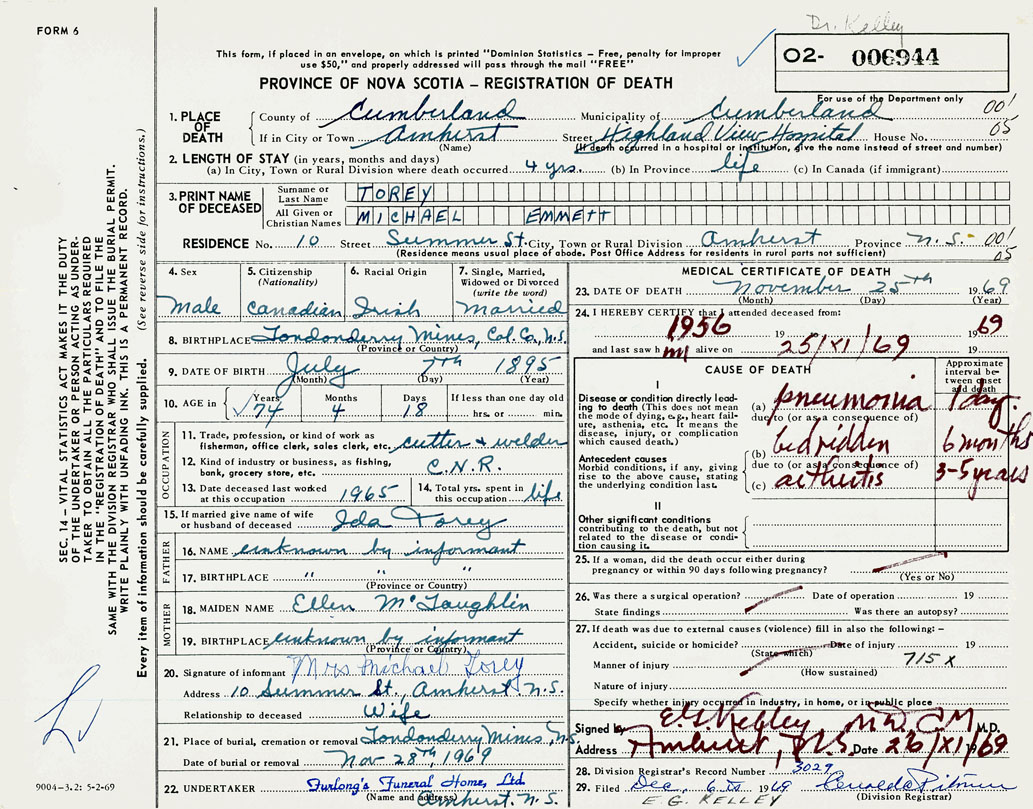 FORM 6
Dr. Kelley
This form, if placed in an envelope, on which is printed "Dominion Statistics – Free, penalty for improper
use $50," and properly addressed will pass through the mail "FREE"
02- 006944
PROVINCE OF NOVA SCOTIA – REGISTRATION OF DEATH
For use of the Department only
1. PLACE OF DEATH County of Cumberland Municipality of Cumberland 00'
If in City or Town Amherst Street Highland View Hospital House No. 05
(Name) (If death occurred in a hospital or institution, give the name instead of street and number)
2. LENGTH OF STAY (in years, months and days)
(a) In City, Town or Rural Division where death occurred 4 yrs. (b) In Province life (c) In Canada (if immigrant)
3. PRINT NAME OF DECEASED Surname or Last Name TOREY
All Given or Christian Names MICHAEL EMMETT
RESIDENCE No. 10 Street Summer St. City, Town or Rural Division Amherst Province N.S. - 00'
(Residence means usual place of abode. Post Office Address for residents in rural parts not sufficient) 05
4. Sex Male
5. Citizenship (Nationality) Canadian
6. Racial Origin Irish
7. Single, Married, Widowed or Divorced (write the word) Married
8. BIRTHPLACE Londonderry Mines, Col. Co., N.S.
(Province or Country)
9. DATE OF BIRTH July 7th 1895
(Month) (Day) (Year)
10. AGE in Years 74 Months 4 Days 18 If less than one day old
hrs. or min.
OCCUPATION
11. Trade, profession, or kind of work as
fisherman, office clerk, sales clerk, etc. cutter + welder
12. Kind of industry or business, as fishing,
bank, grocery store, etc. C.N.R.
13. Date deceased last worked at this occupation 1965
14. Total yrs. spent in this occupation life
15. If married give name of wife
or husband of deceased Ida Torey
FATHER
16. NAME unknown by informant
17. BIRTHPLACE " " "
(Province or Country)
MOTHER
18. MAIDEN NAME Ellen McLaughlin
19. BIRTHPLACE unknown by informant
(Province or Country)
20. Signature of informant Mrs Michael Torey
Address 10 Summer St., Amherst N.S.
Relationship to deceased Wife
21. Place of burial, cremation or removal Londonderry Mines, N.S.
Date of burial or removal Nov 28th, 1969
22. UNDERTAKER Furlong's Funeral Home, Ltd
(Name and address) Amherst. N.S.
MEDICAL CERTIFICATE OF DEATH
23. DATE OF DEATH November 25th 1969
(Month) (Day) (Year)
24. I HEREBY CERTIFY that I attended deceased from:
1956 19 1969
and last saw him alive on 25/XI/69 19
CAUSE OF DEATH
Approximate interval between onset and death
I
Disease or condition directly leading to death (This does not mean the mode of dying, e.g., heart failure, asthenia, etc. It means the disease, injury, or complication which caused death.)
(a) pneumonia 1 day.
due to (or as a consequence of)
Antecedent causes
Morbid conditions, if any, giving rise to the above cause, stating the underlying condition last.
(b) bedridden 6 months
due to (or as a consequence of)
(c) arthritis 3-5 years
II
Other significant conditions
contributing to the death, but not
related to the disease or condition causing it.
25. If a woman, did the death occur either during
pregnancy or within 90 days following pregnancy?
(Yes or No)
26. Was there a surgical operation? Date of operation 19
State findings Was there an autopsy?
27. If death was due to external causes (violence) fill in also the following: –
Accident, suicide or homicide? Date of injury 19
(State which)
Manner of injury 715 x
(How sustained)
Nature of injury
Specify whether injury occurred in industry, in home, or in public place
Signed by E.G. Kelley M.D. C.M. M.D.
Address Amherst, N.S. Date 26/XI/1969
28. Division Registrar's Record Number 3029
29. Filed Dec. 6th 1969
(Division Registrar)
E. G. KELLEY
SEC. 14 – VITAL STATISTICS ACT MAKES IT THE DUTY
OF THE UNDERTAKER OR PERSON ACTING AS UNDER-
TAKER TO OBTAIN ALL THE PARTICULARS REQUIRED
IN THE "REGISTRATION OF DEATH" AND TO FILE THE
SAME WITH THE DIVISION REGISTRAR WHO SHALL ISSUE THE BURIAL PERMIT.
WRITE PLAINLY WITH UNFADING INK. THIS IS A PERMANENT RECORD.
Every item of information should be carefully supplied. (See reverse side for instructions.)
9004-3.2: 5-2-69